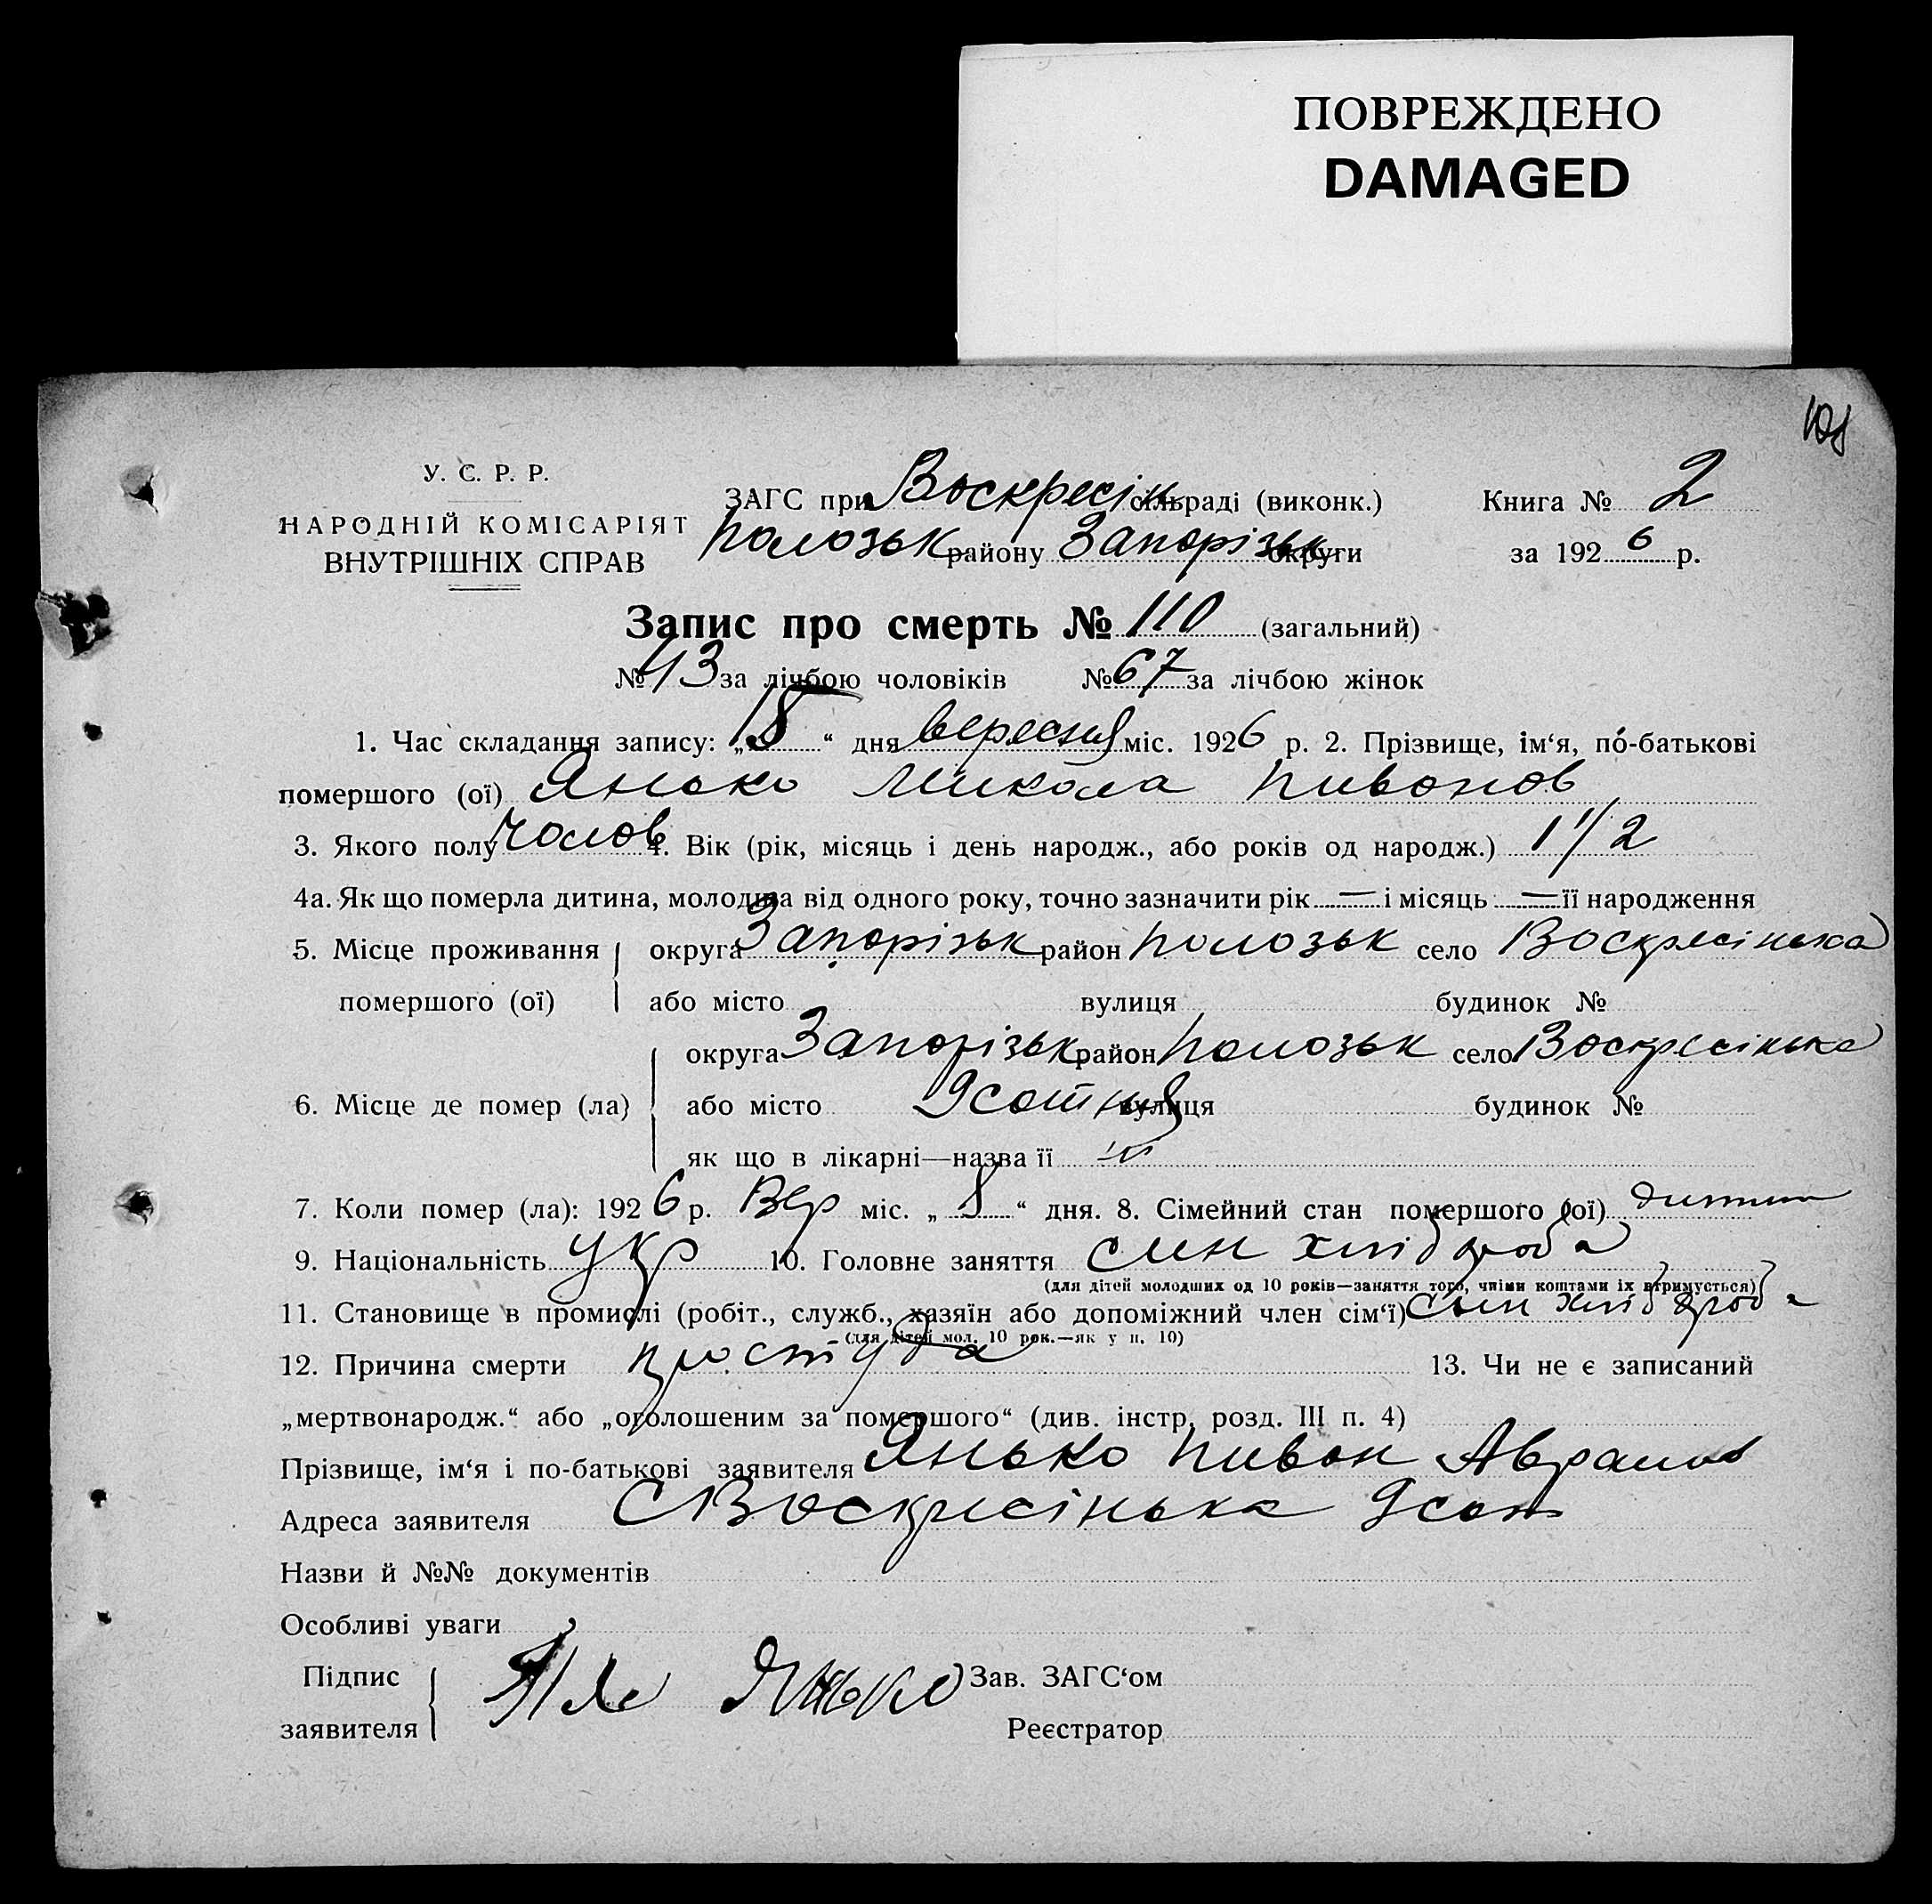 ПОВРЕЖДЕНО
DAMAGED
У. С. Р. Р.
НАРОДНІЙ КОМІСАРІЯТ
ВНУТРІШНІХ СПРАВ
ЗАГС при Воскресінк сільраді (виконк.)
Полозьк району Запорізьк округи
Книга № 2
за 1926 р.
Запис про смерть № 110 (загальний)
№ 43 за лічбою чоловіків № 67 за лічбою жінок
1. Час складання запису: „ “ дня вересня міс. 1926 р. 2. Прізвище, ім‘я, по-батькові
помершого (ої) Янько Микола Пивонов
3. Якого полу чолов 4. Вік (рік, місяць і день народж., або років од народж.) 1 1/2
4а. Як що померла дитина, молодша від одного року, точно зазначити рік — і місяць — її народження
5. Місце проживання помершого (ої) округа Запорізьк район Полозьк село Воскресінька
або місто вулиця будинок №
6. Місце де помер (ла) округа Запорізьк район Полозьк село Воскресінька
або місто 9 сотня вулиця будинок №
як що в лікарні—назва її
7. Коли помер (ла): 1926 р. Вер міс. „ 8 “ дня. 8. Сімейний стан помершого (ої) дитин
9. Національність укр 10. Головне заняття син хлібороба
(для дітей молодших од 10 років—заняття того, чиїми коштами їх втримується)
11. Становище в промислі (робіт., служб., хазяїн або допоміжний член сім‘ї) син хлібороба
(для дітей мол. 10 рок.—як у п. 10)
12. Причина смерти простуда 13. Чи не є записаний
„мертвонародж.“ або „оголошеним за помершого“ (див. інстр. розд. III п. 4)
Прізвище, ім‘я і по-батькові заявителя Янько Пивон Аврамов
Адреса заявителя С Воскресінька 9 сот
Назви й №№ документів
Особливі уваги
Підпис заявителя Янько Зав. ЗАГС‘ом
Реєстратор